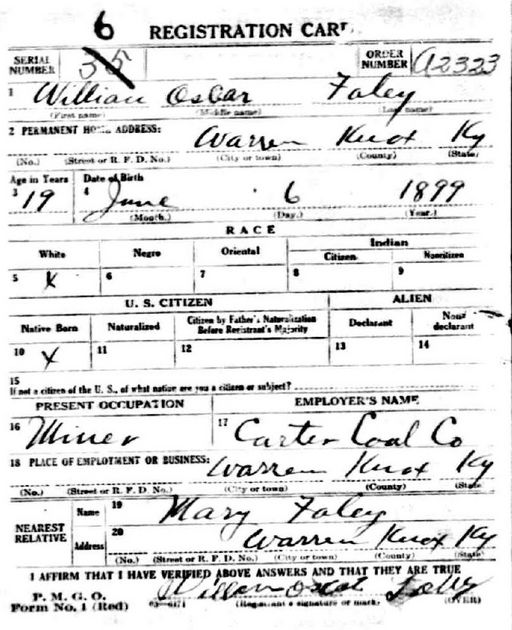 6 REGISTRATION CARD
SERIAL NUMBER 35 ORDER NUMBER A2323
1 William Oscar Foley
(First name) (Middle name) (Last name)
2 PERMANENT HOME ADDRESS: Warren Knox Ky
(No.) (Street or R. F. D. No.) (City or town) (County) (State)
Age in Years Date of Birth
3 19 4 June 6 1899
(Month.) (Day.) (Year.)
RACE
White Negro Oriental Indian
Citizen Noncitizen
5 X 6 7 8 9
U. S. CITIZEN ALIEN
Native Born Naturalized Citizen by Father's Naturalization Before Registrant's Majority Declarant Non-declarant
10 X 11 12 13 14
15
If not a citizen of the U. S., of what nation are you a citizen or subject?
PRESENT OCCUPATION EMPLOYER'S NAME
16 Miner 17 Carter Coal Co
18 PLACE OF EMPLOYMENT OR BUSINESS: Warren Knox Ky
(No.) (Street or R. F. D. No.) (City or town) (County) (State)
NEAREST RELATIVE Name 19 Mary Foley
Address 20 Warren Knox Ky
(No.) (Street or R. F. D. No.) (City or town) (County) (State)
I AFFIRM THAT I HAVE VERIFIED ABOVE ANSWERS AND THAT THEY ARE TRUE
P. M. G. O.
Form No. 1 (Red) 03-6171 William Oscar Foley
(Registrant's signature or mark) (OVER)